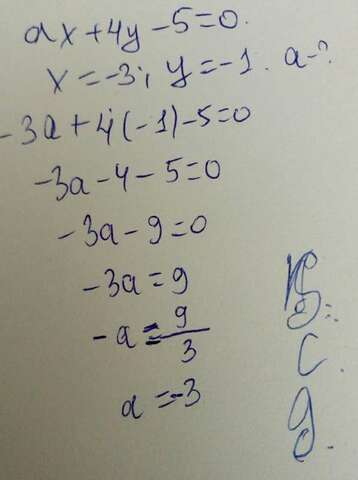 ax+4y-5=0.
x=-3; y=-1. a-?
-3a+4(-1)-5=0
-3a-4-5=0
-3a-9=0
-3a=9
-a=9/3
a=-3
B.
c.
g.